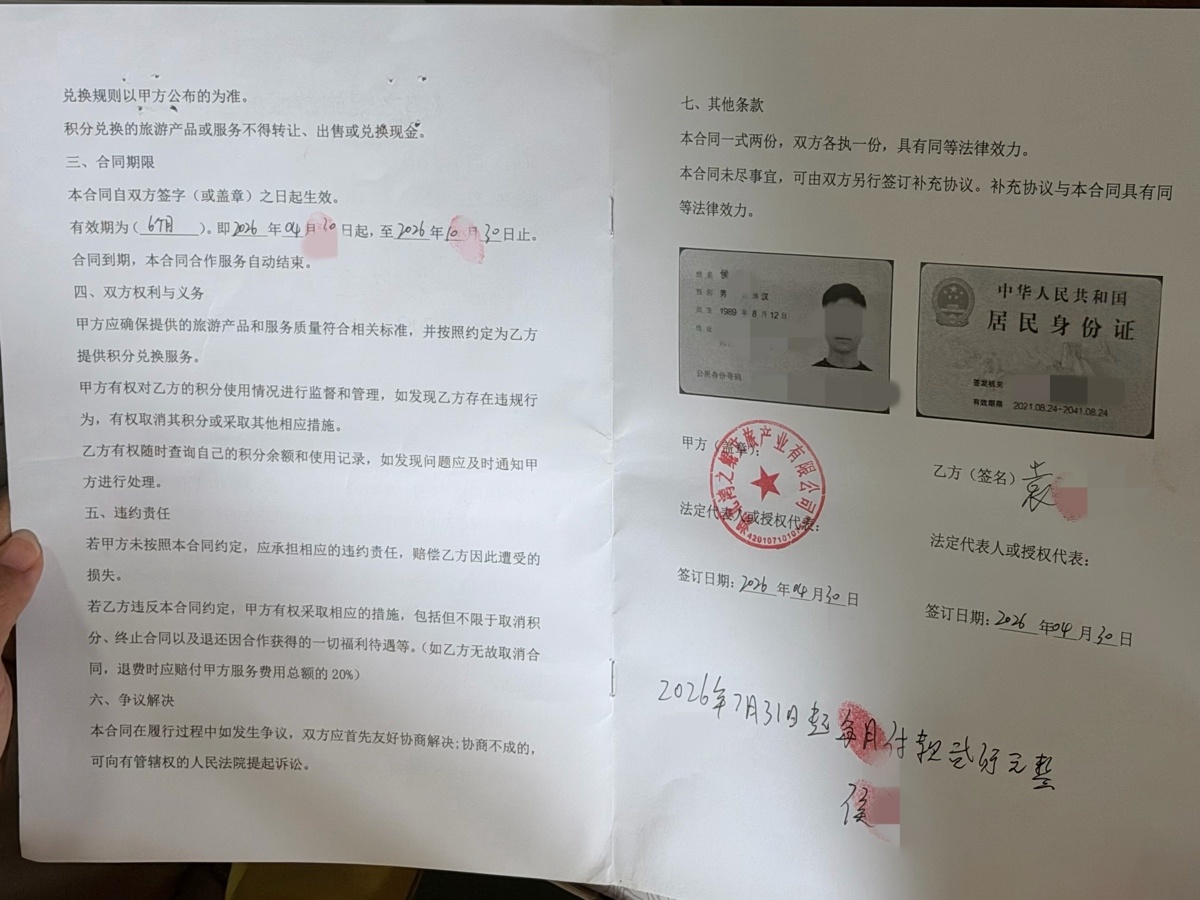 兑换规则以甲方公布的为准。
积分兑换的旅游产品或服务不得转让、出售或兑换现金。
三、合同期限
本合同自双方签字（或盖章）之日起生效。
有效期为（6个月）。即2026年04月30日起，至2026年10月30日止。
合同到期，本合同合作服务自动结束。
四、双方权利与义务
甲方应确保提供的旅游产品和服务质量符合相关标准，并按照约定为乙方
提供积分兑换服务。
甲方有权对乙方的积分使用情况进行监督和管理，如发现乙方存在违规行
为，有权取消其积分或采取其他相应措施。
乙方有权随时查询自己的积分余额和使用记录，如发现问题应及时通知甲
方进行处理。
五、违约责任
若甲方未按照本合同约定，应承担相应的违约责任，赔偿乙方因此遭受的
损失。
若乙方违反本合同约定，甲方有权采取相应的措施，包括但不限于取消积
分、终止合同以及退还因合作获得的一切福利待遇等。（如乙方无故取消合
同，退费时应赔付甲方服务费用总额的20%）
六、争议解决
本合同在履行过程中如发生争议，双方应首先友好协商解决;协商不成的，
可向有管辖权的人民法院提起诉讼。
七、其他条款
本合同一式两份，双方各执一份，具有同等法律效力。
本合同未尽事宜，可由双方另行签订补充协议。补充协议与本合同具有同
等法律效力。
姓名 侯
性别 男 民族 汉
出生 1989 年 8 月 12 日
住址
公民身份号码
中华人民共和国
居民身份证
签发机关
有效期限 2021.08.24-2041.08.24
甲方（盖章）：
旅产业有限公司
42010710101
法定代表人或授权代表：
签订日期：2026年04月30日
乙方（签名）袁
法定代表人或授权代表：
签订日期：2026年04月30日
2026年7月31日起每月付款贰仟元整
侯